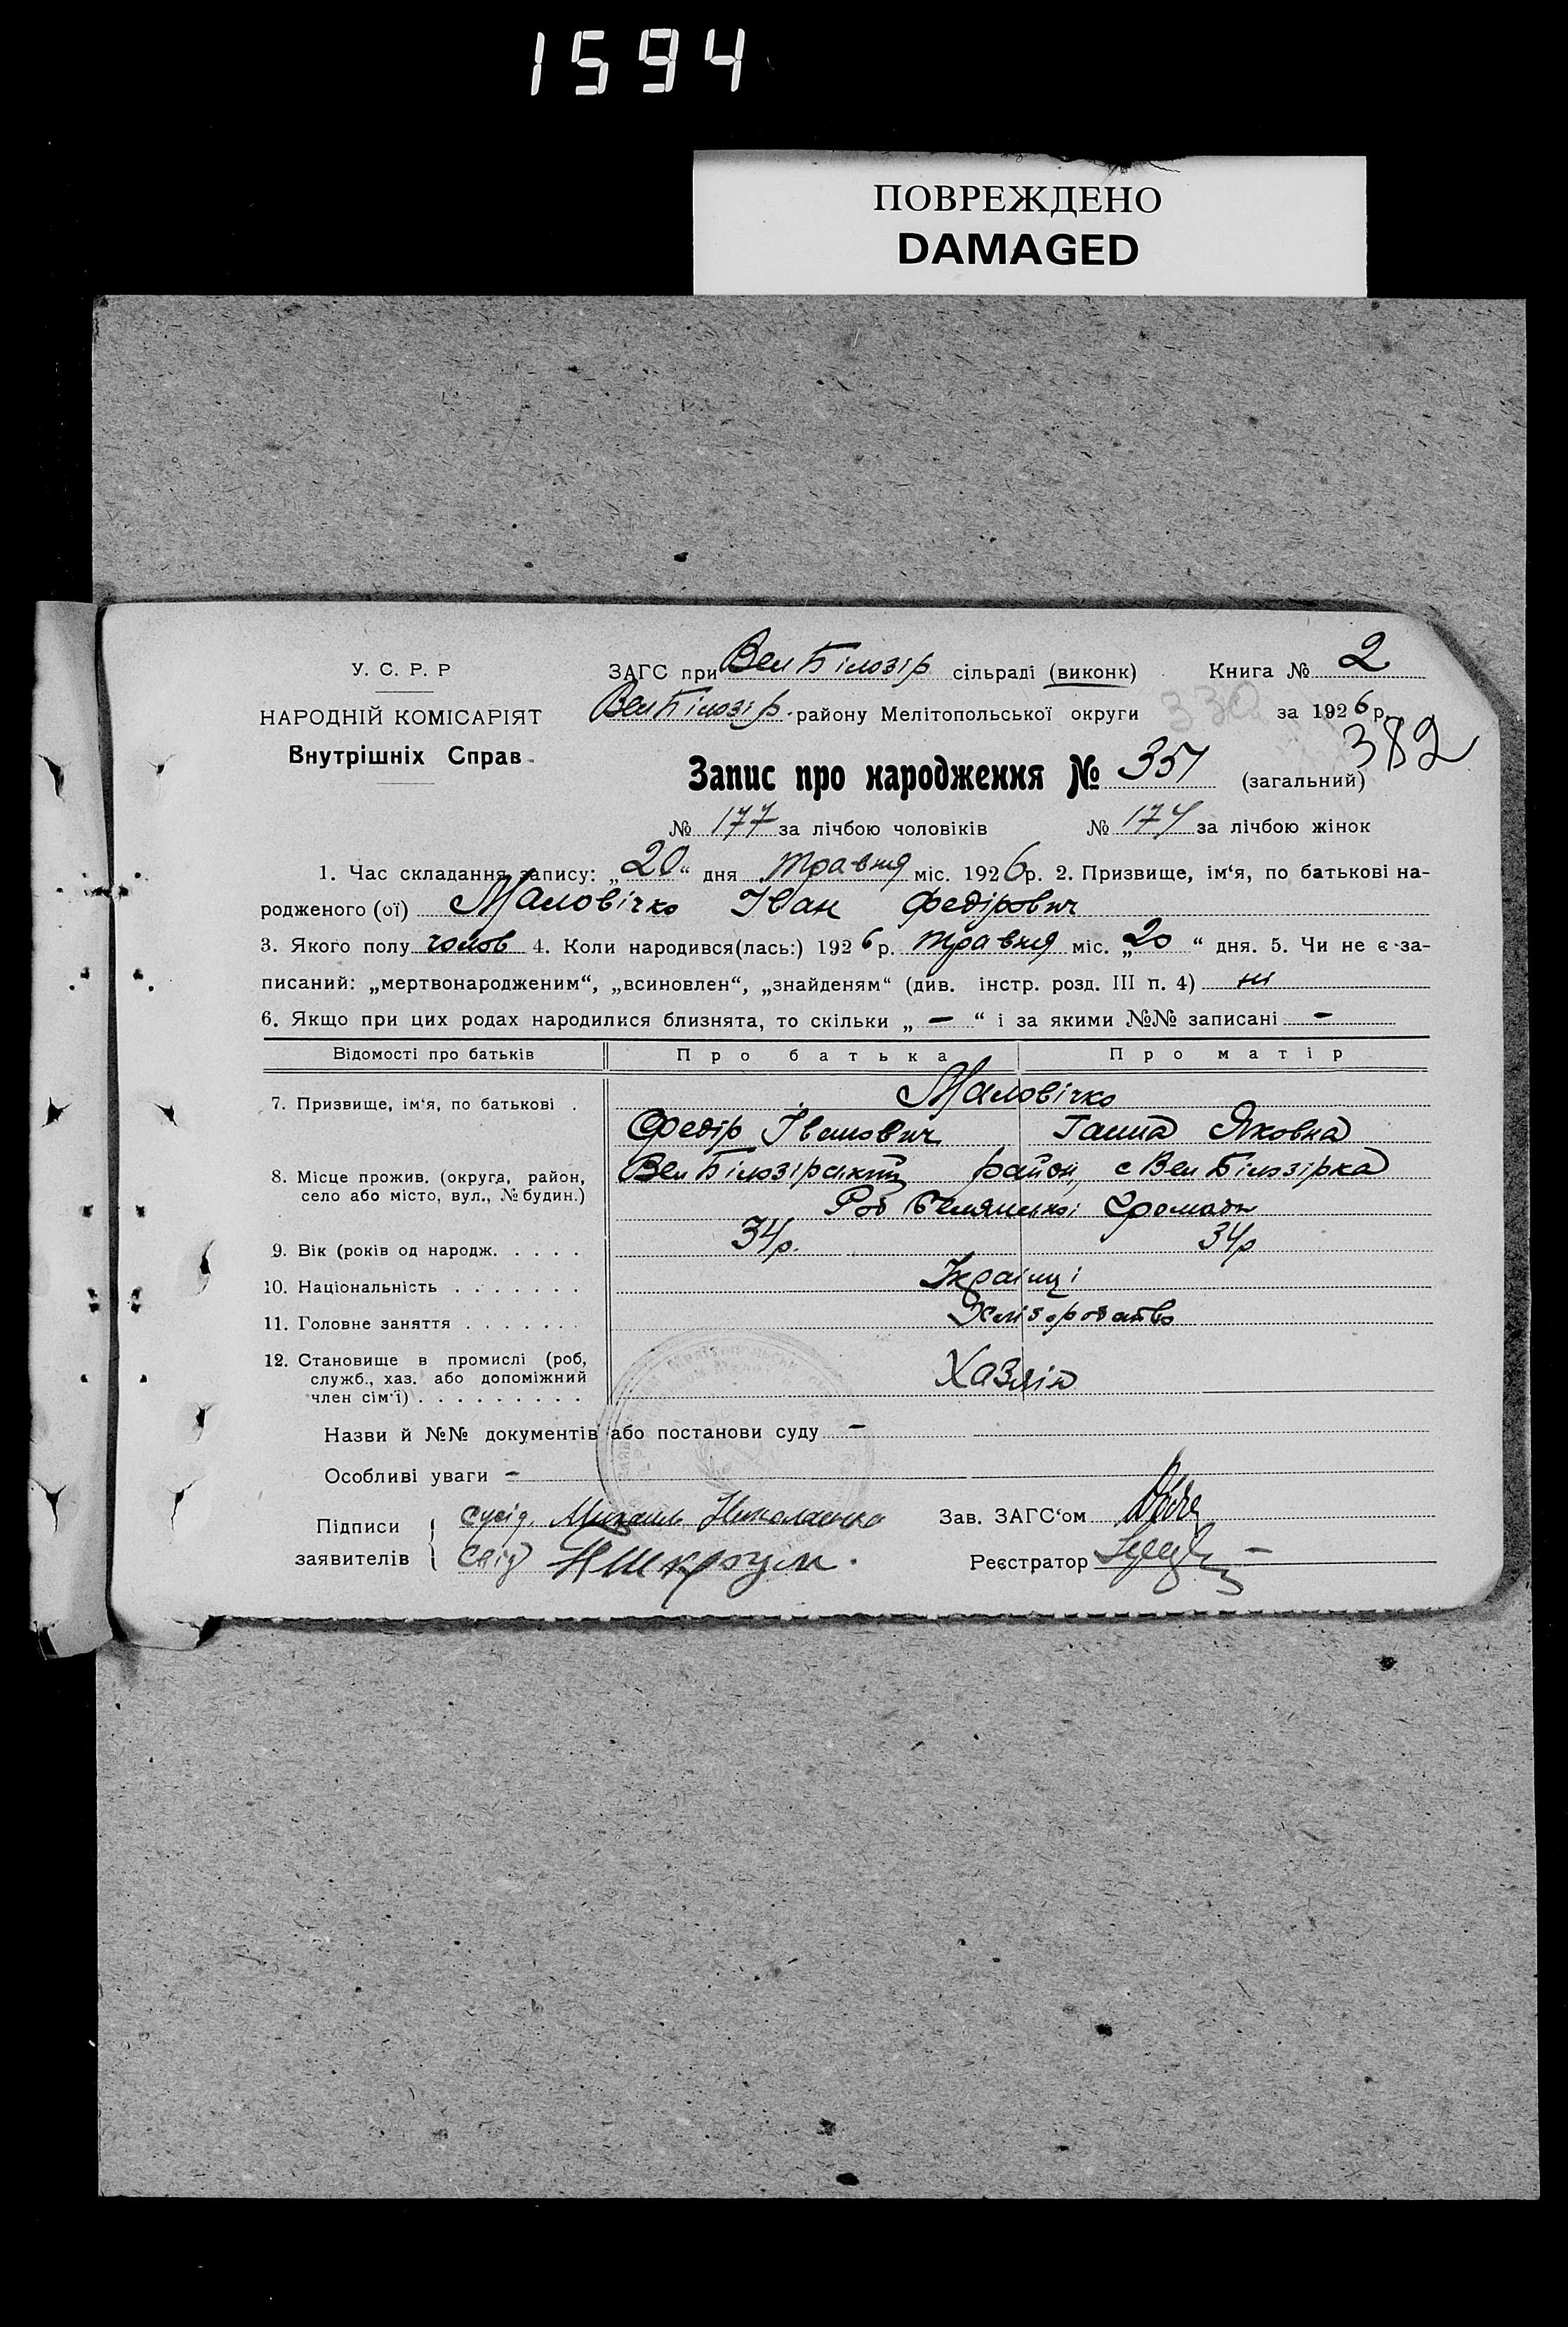 1594
ПОВРЕЖДЕНО
DAMAGED
У. С. Р. Р
НАРОДНІЙ КОМІСАРІЯТ
Внутрішніх Справ
ЗАГС при Вел Білозір сільраді (виконк) Книга № 2
Вел Білозір. району Мелітопольської округи 330 за 1926 р.
382
Запис про народження № 351 (загальний)
№ 177 за лічбою чоловіків № 174 за лічбою жінок
1. Час складання запису: „20“ дня травня міс. 1926р. 2. Призвище, ім‘я, по батькові на-
родженого (ої) Маловічко Іван Федірович
3. Якого полу чолов 4. Коли народився(лась:) 1926 р. травня міс. „20“ дня. 5. Чи не є за-
писаний: „мертвонародженим“, „всиновлен“, „знайденям“ (див. інстр. розд. III п. 4) ні
6. Якщо при цих родах народилися близнята, то скільки „ — “ і за якими №№ записані —
Відомості про батьків Про батька Про матір
7. Призвище, ім‘я, по батькові . Маловічко
Федір Іванович Ганна Яковна
8. Місце прожив. (округа, район,
село або місто, вул., № будин.)
Вел Білозірський район, с Вел Білозірка
Громади
9. Вік (років од народж. . . . . 34р. 34р
10. Національність . . . . . . . Українці
11. Головне заняття . . . . . . . Хліборобство
12. Становище в промислі (роб,
служб., хаз. або допоміжний
член сім‘ї) . . . . . . . . . Хазяїн
Назви й №№ документів або постанови суду —
Особливі уваги —
Підписи
заявителів
сусід. Михаил Николаенко
Зав. ЗАГС‘ом
Реєстратор